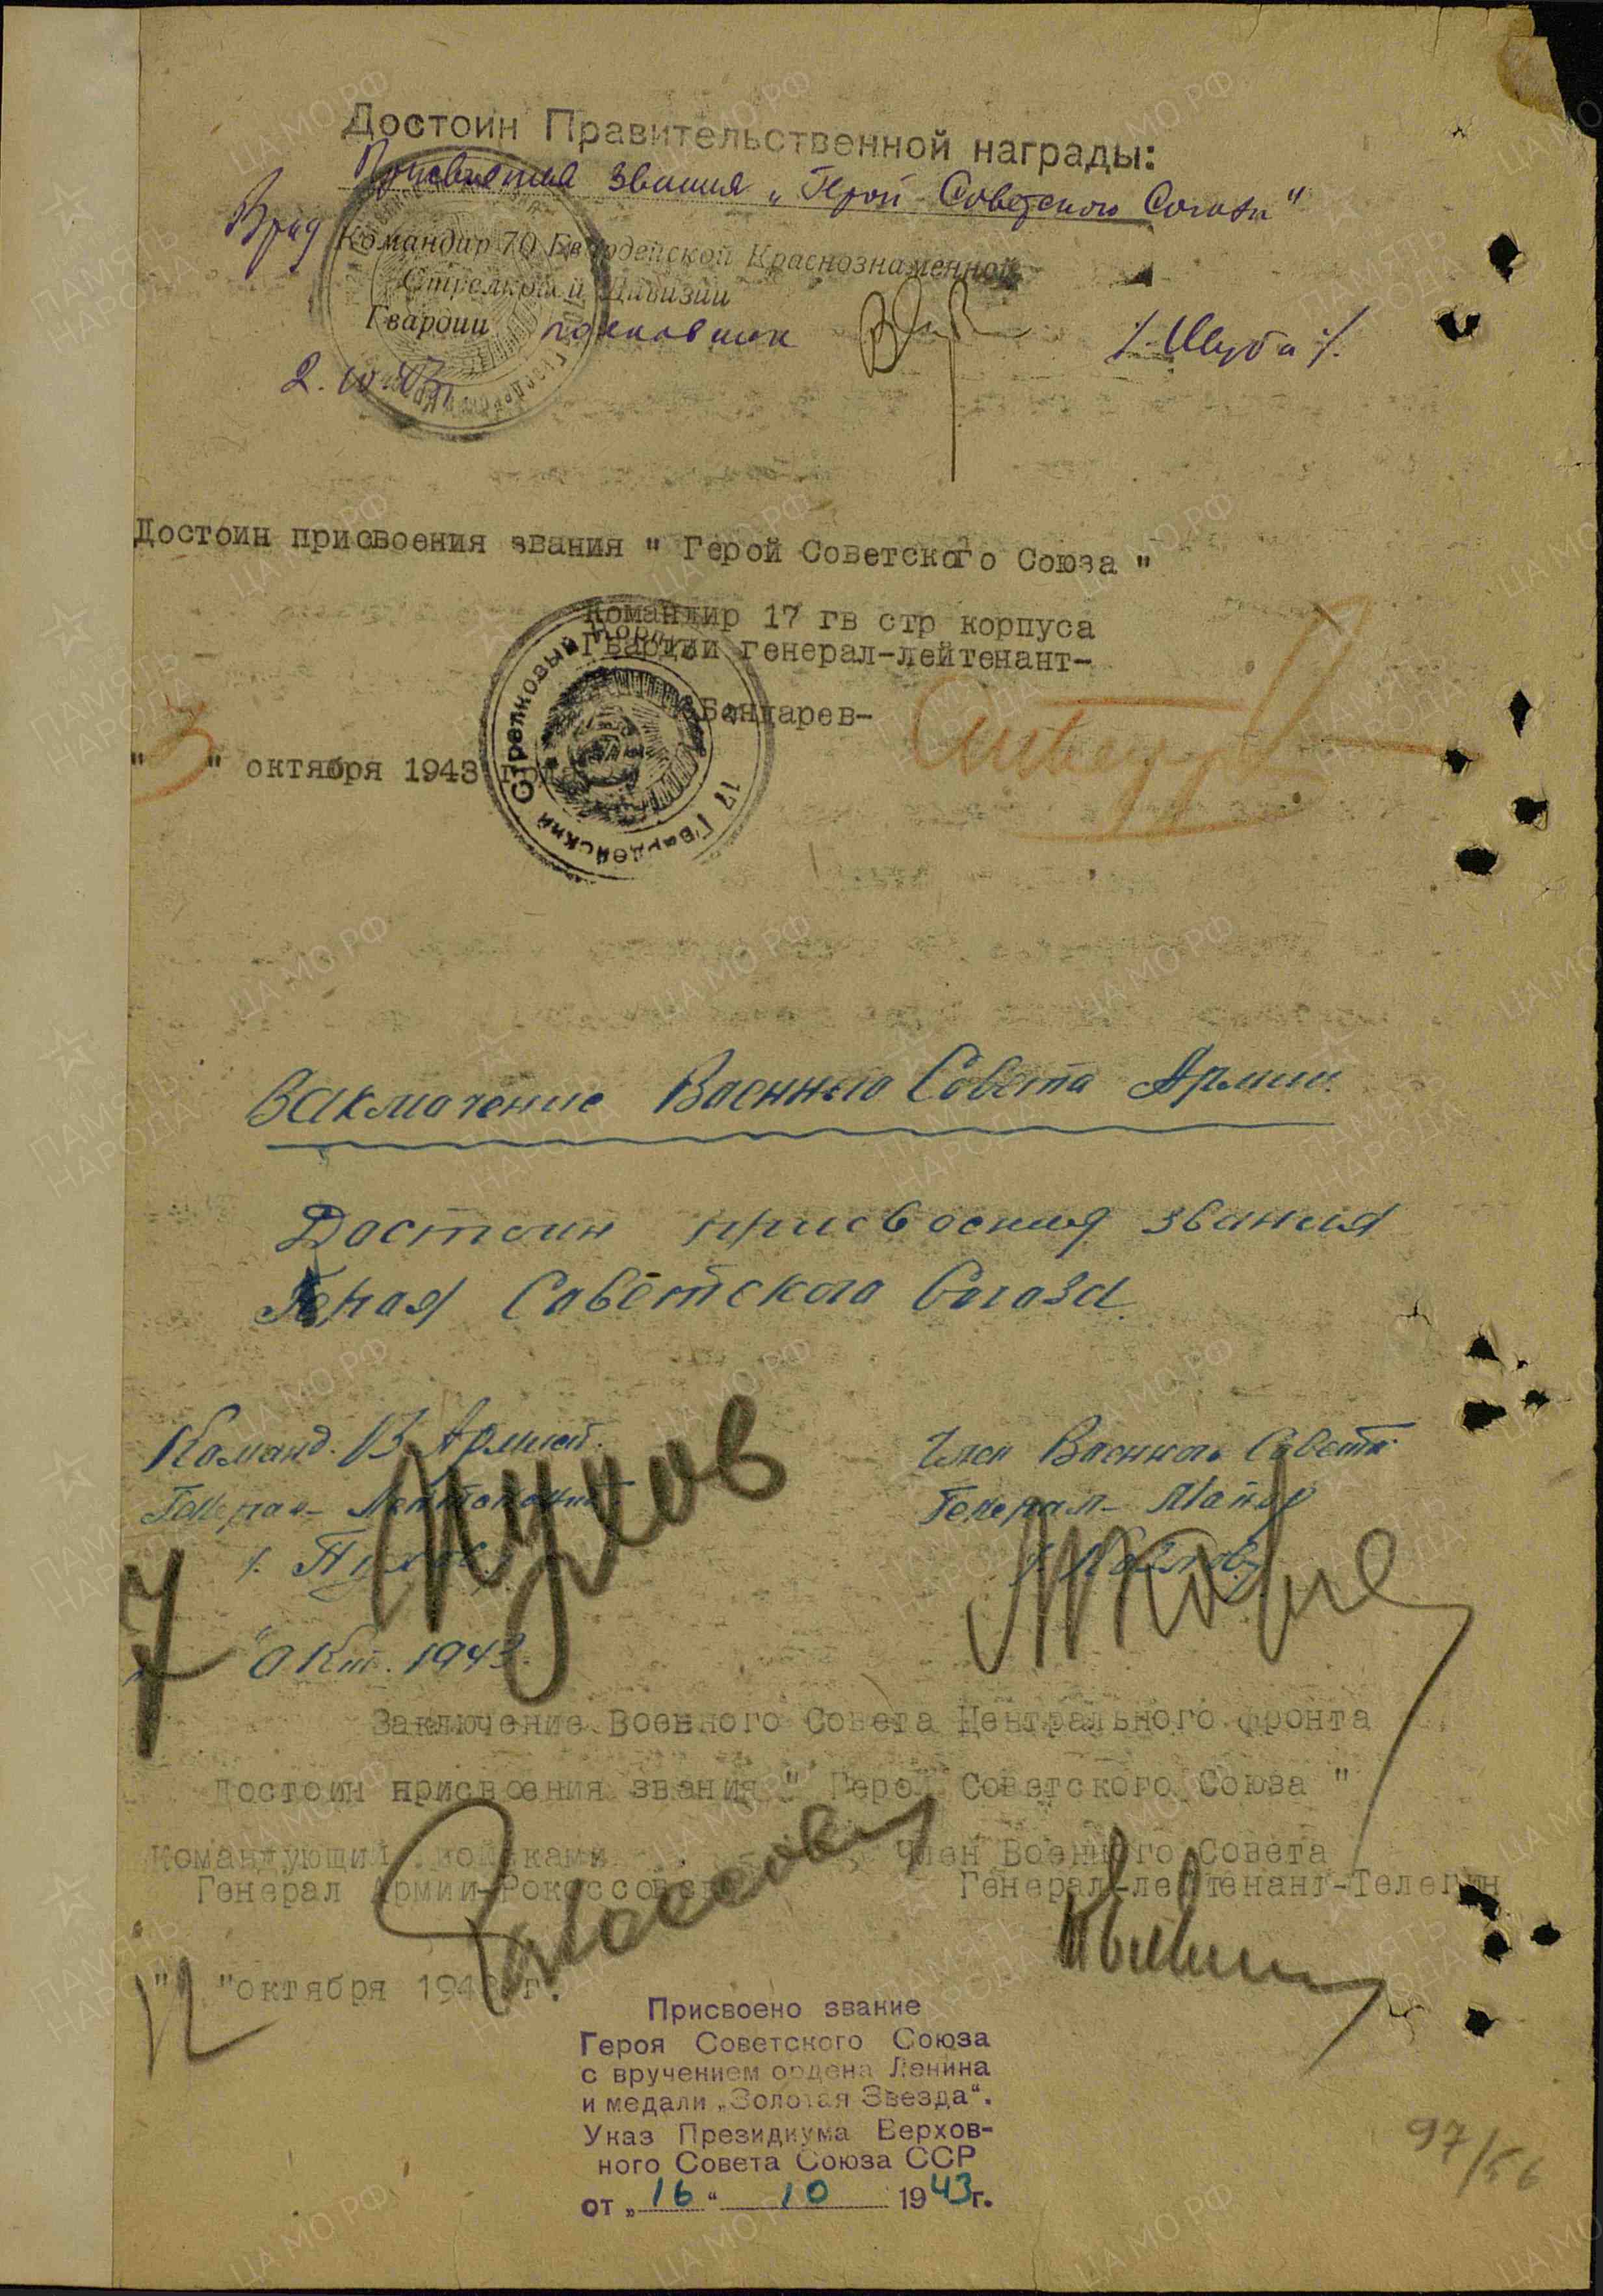 Достоин Правительственной награды:
Присвоения звания „Герой Советского Союза"
Врид Командир 70 Гвардейской Краснознаменной
Стрелковой Дивизии
Гвардии полковник /. Шуба /.
2.10.43г
Достоин присвоения звания " Герой Советского Союза "
Командир 17 гв стр корпуса
Гвардии генерал-лейтенант-
Бондарев-
" 3 " октября 1943 года
17 Гвардейский Стрелковый Корпус
Заключение Военного Совета Армии.
Достоин присвоения звания
Героя Советского Союза
Команд. 13 Армией.
Генерал-Лейтенант
/. Пухов /.
Пухов
Член Военного Совета
Генерал-Майор
/. Козлов /.
" 7 " Окт. 1943.
Заключение Военного Совета Центрального фронта
Достоин присвоения звания " Герой Советского Союза "
Командующий войсками
Генерал Армии-Рокоссовский
Рокоссовский
Член Военного Совета
Генерал-лейтенант-Телегин
" 12 "октября 1943 г.
Присвоено звание
Героя Советского Союза
с вручением ордена Ленина
и медали „Золотая Звезда".
Указ Президиума Верхов-
ного Совета Союза ССР
от „ 16 " 10 1943г.
97/66
ЦА МО РФ
ПАМЯТЬ
НАРОДА